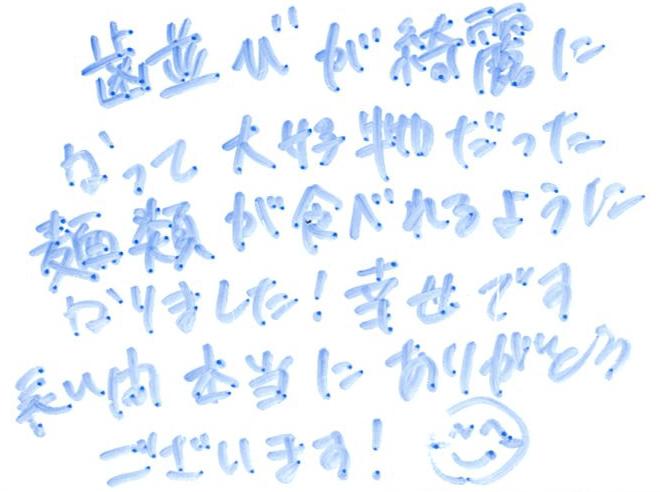 歯並びが綺麗に
なって大好物だった
麺類が食べれるように
なりました！幸せです
長い間本当にありがとう
ございます！